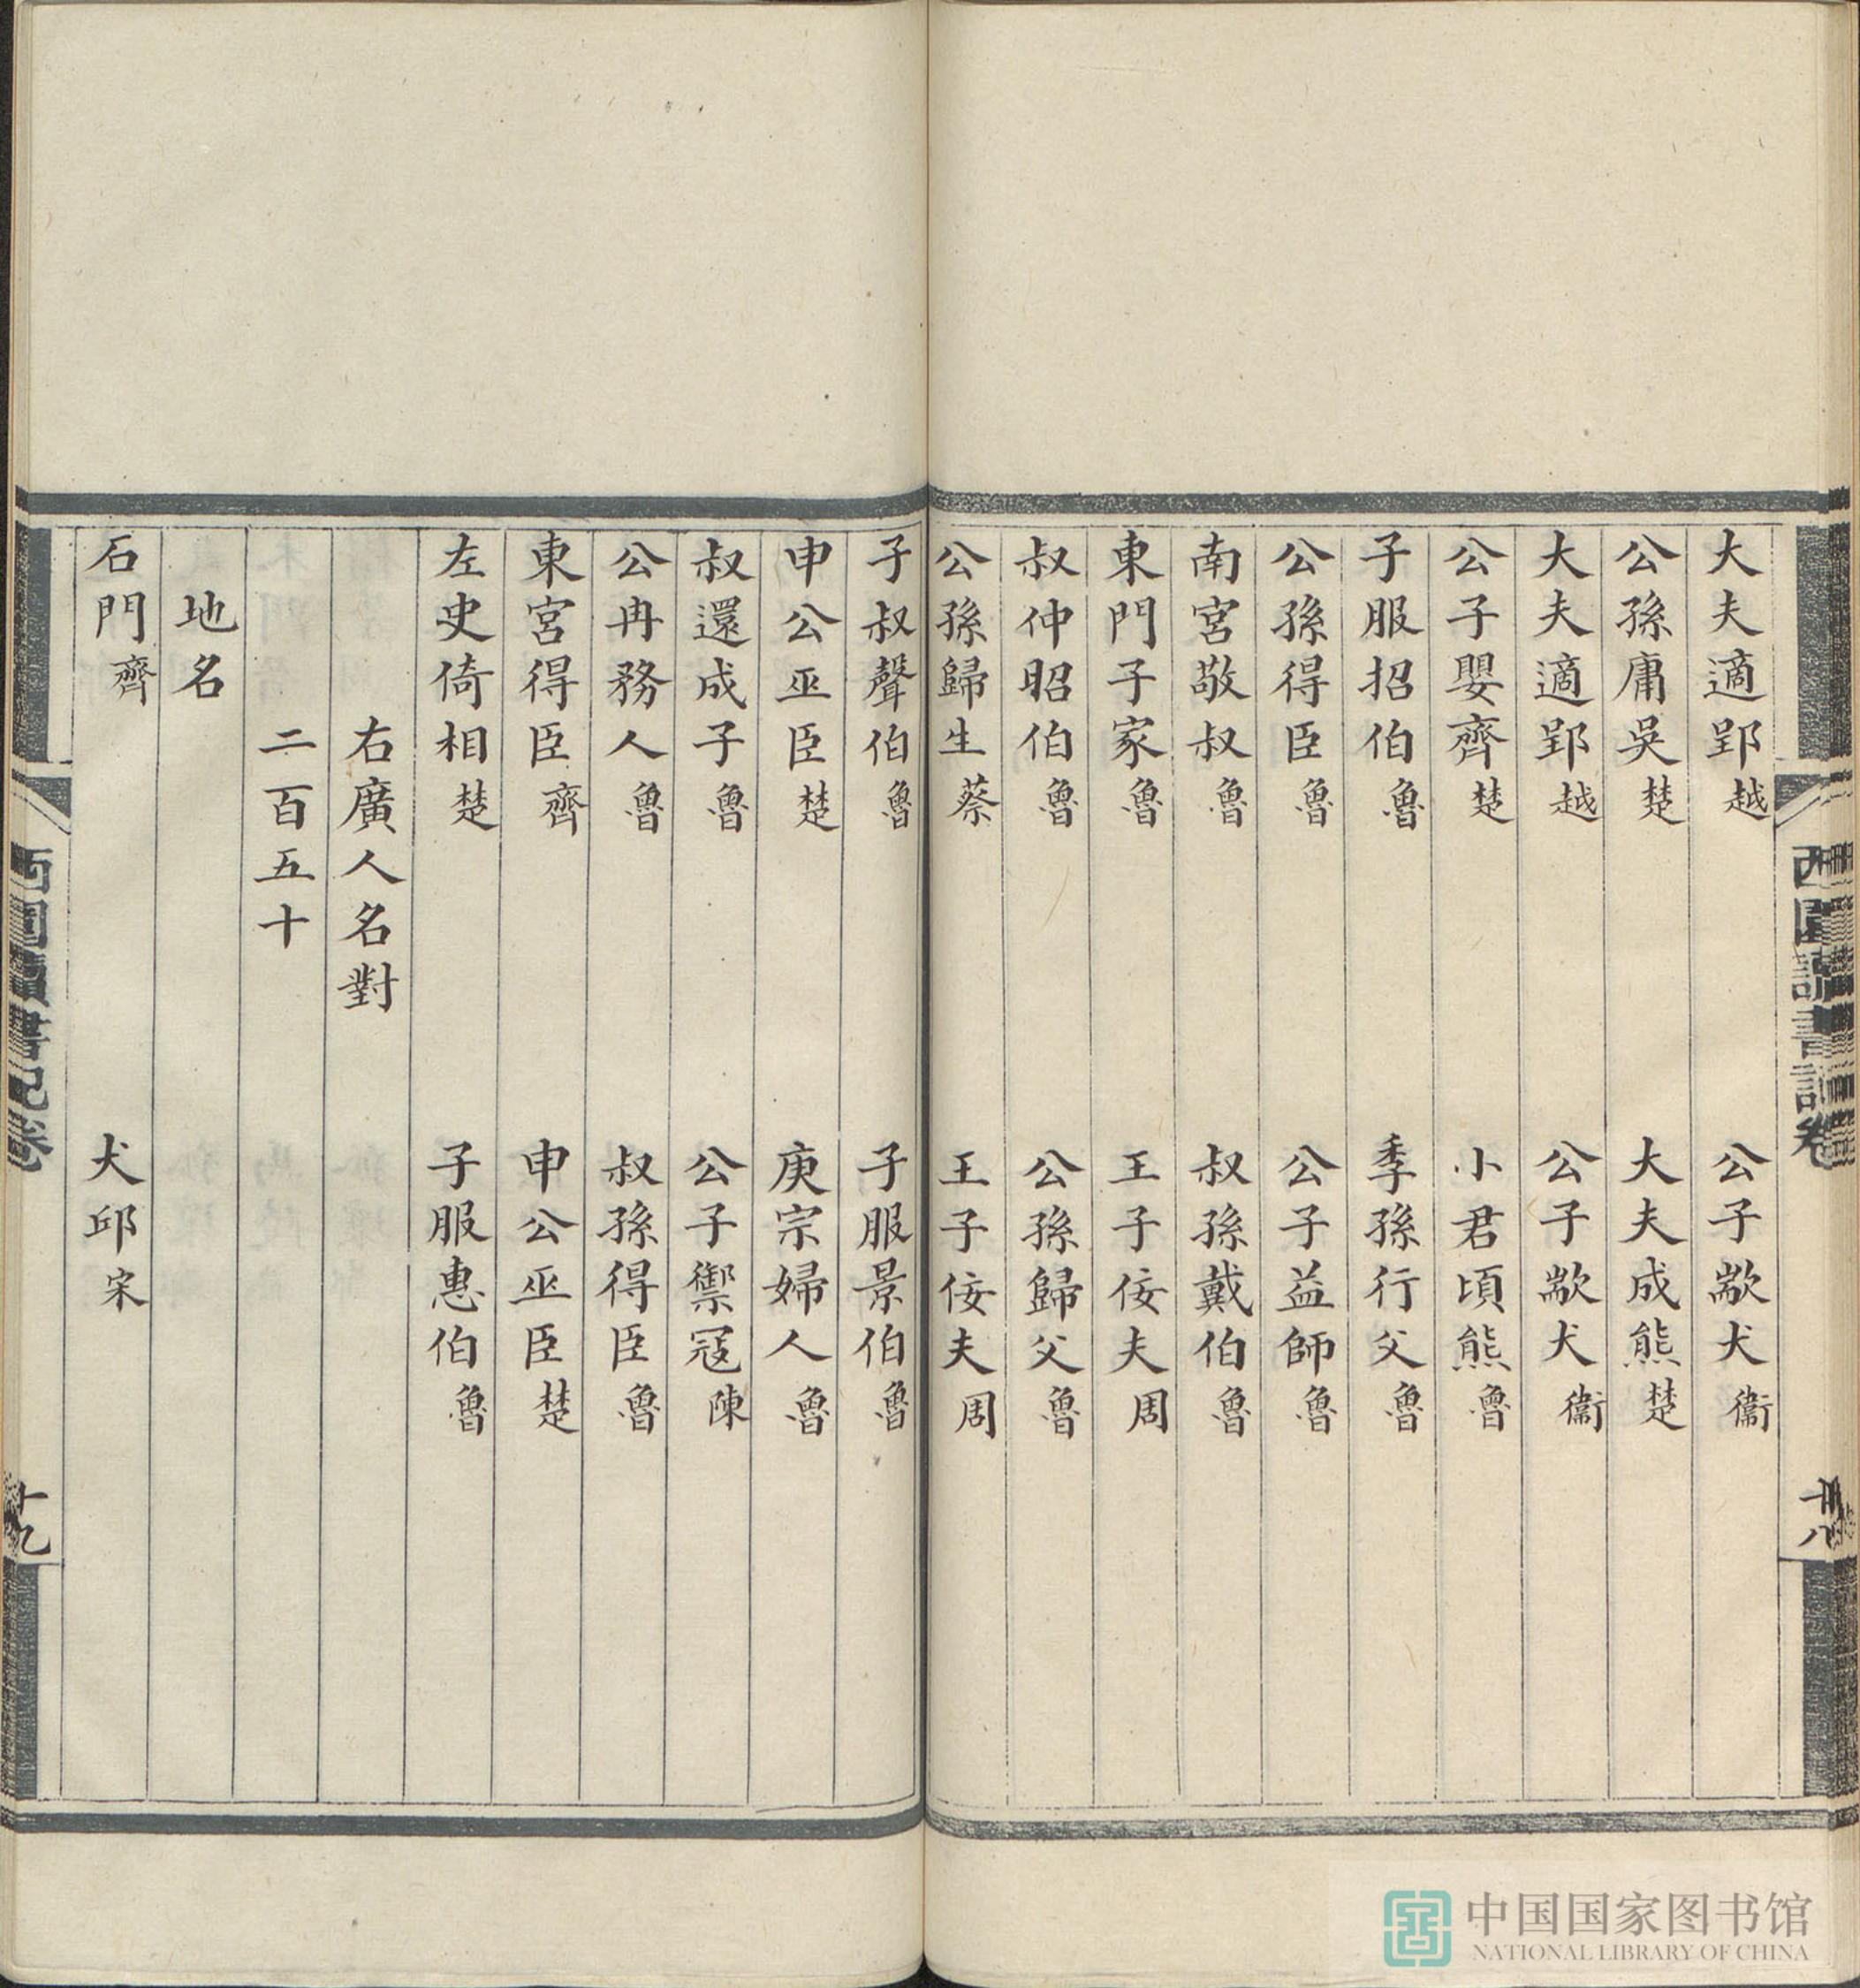 大夫適郢越 公子歂犬衞
公孫庸吳楚 大夫成熊楚
大夫適郢越 公子歂犬衞
公子嬰齊楚 小君頃熊魯
子服招伯魯 季孫行父魯
公孫得臣魯 公子益師魯
南宮敬叔魯 叔孫戴伯魯
東門子家魯 王子佞夫周
叔仲昭伯魯 公孫歸父魯
公孫歸生蔡 王子佞夫周
西園讀書記卷
十八
子叔聲伯魯 子服景伯魯
申公巫臣楚 庚宗婦人魯
叔還成子魯 公子禦寇陳
公冉務人魯 叔孫得臣魯
東宮得臣齊 申公巫臣楚
左史倚相楚 子服惠伯魯
右廣人名對
二百五十
地名
石門齊 犬邱宋
西園讀書記卷
十九
中国国家图书馆
NATIONAL LIBRARY OF CHINA